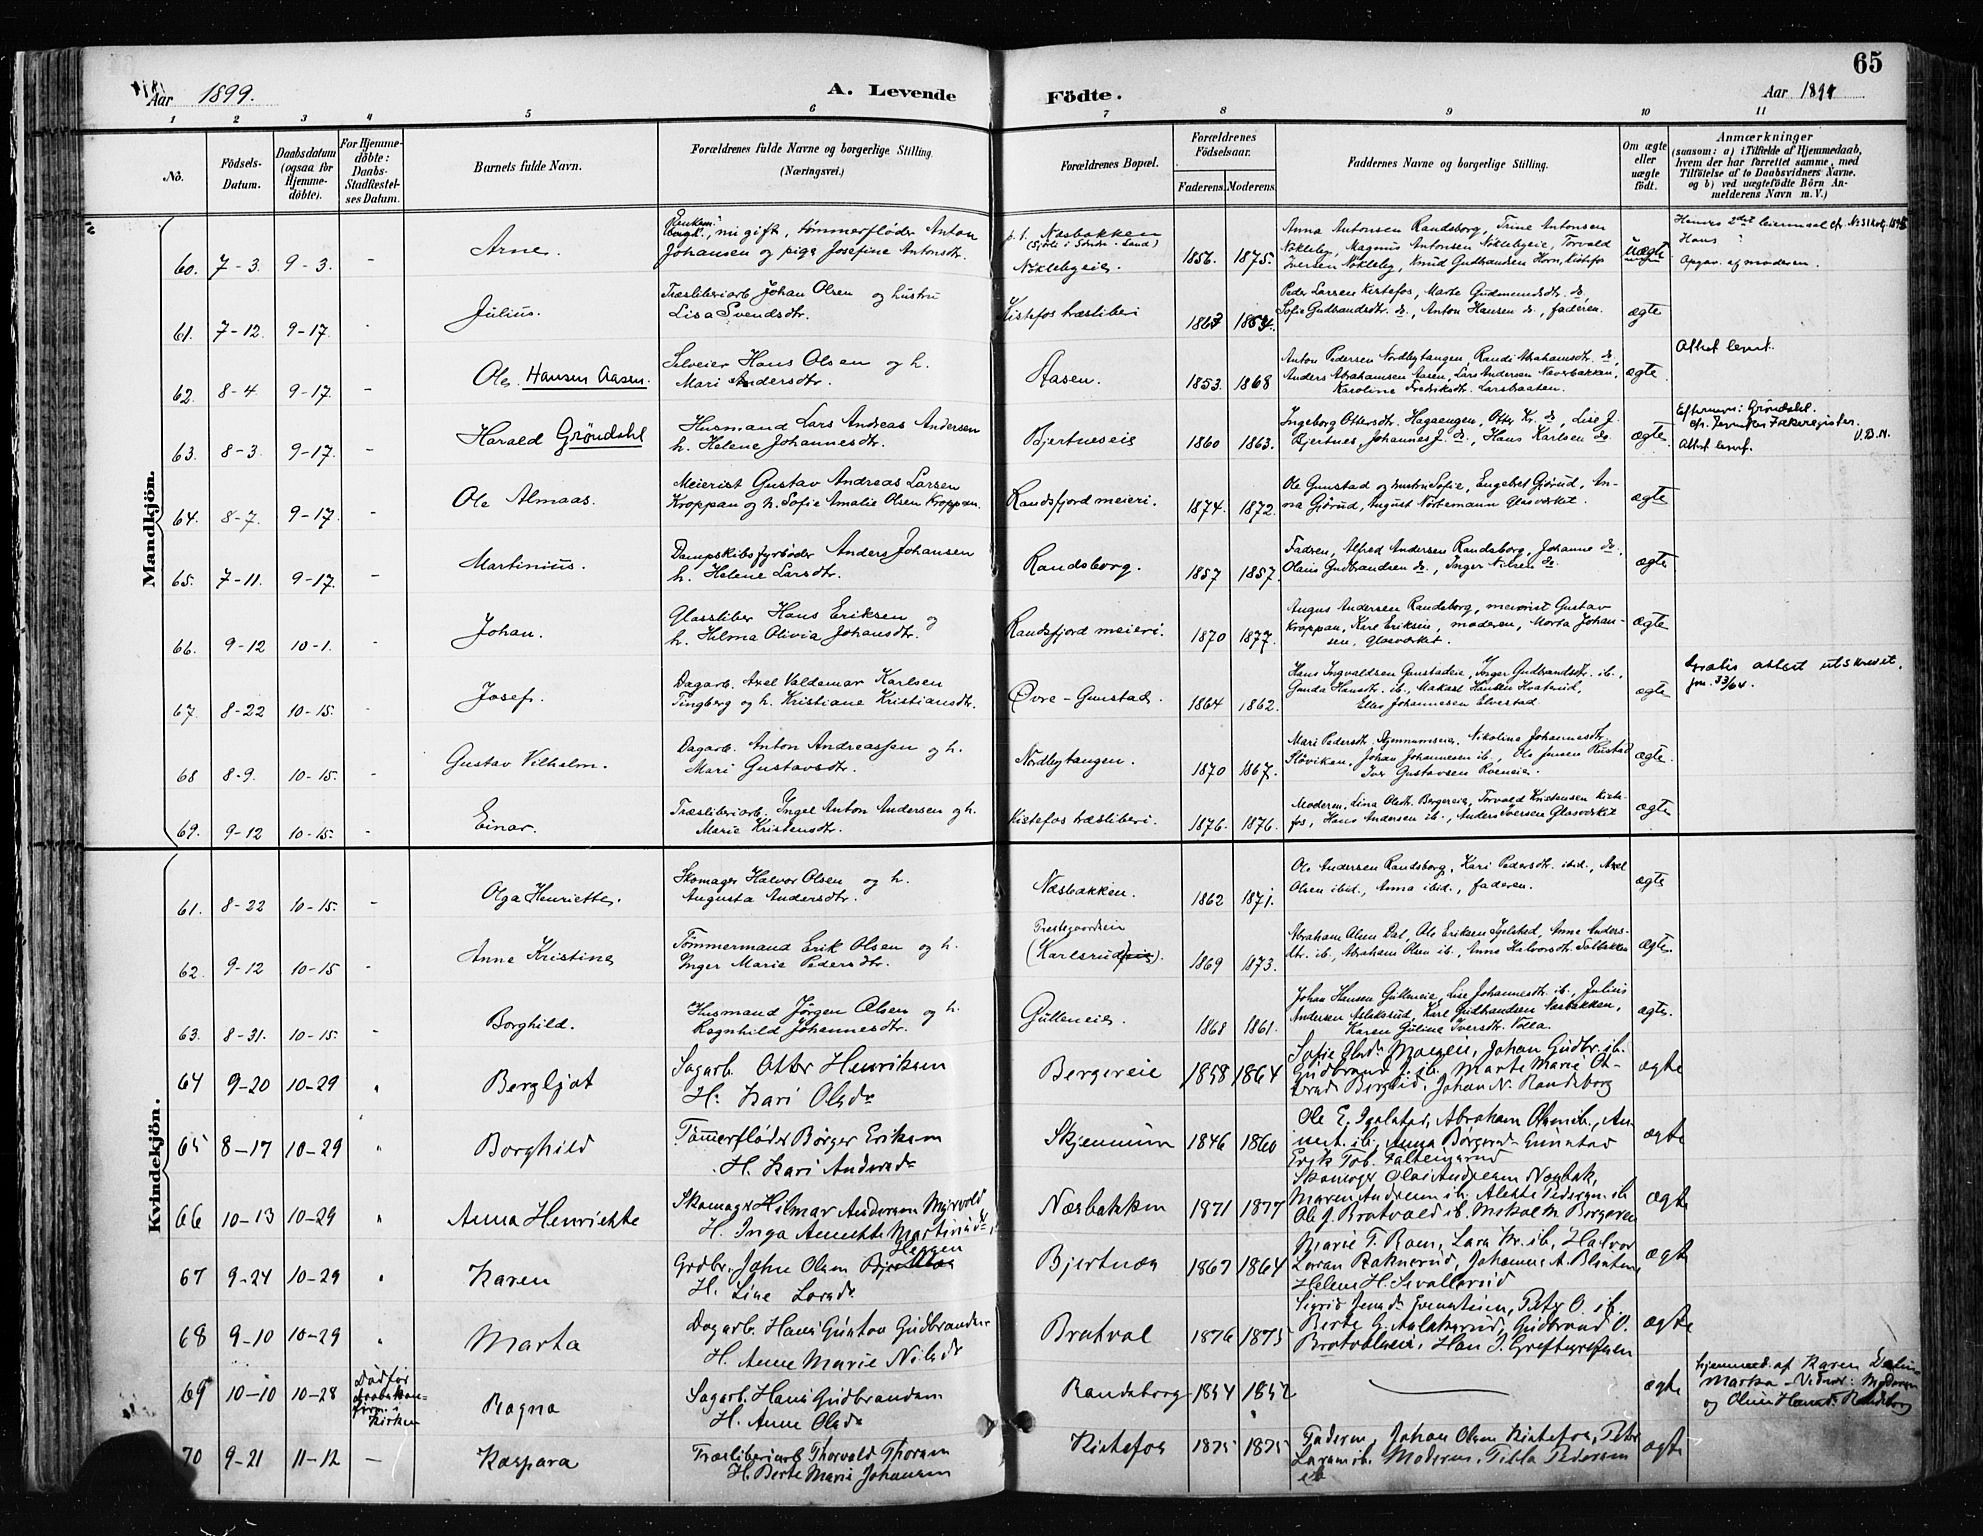 65
Aar 1899.
A. Levende Födte.
Aar 1899
1 2 3 4 5 6 7 8 9 10 11
No.
Födsels-Datum.
Daabsdatum (ogsaa for Hjemme-döbte).
For Hjemme-döbte: Daabs-Stadfæstel-ses Datum.
Barnets fulde Navn.
Forældrenes fulde Navne og borgerlige Stilling. (Næringsvei.)
Forældrenes Bopæl.
Forældrenes Födselsaar.
Faderens. Moderens.
Faddernes Navne og borgerlige Stilling.
Om ægte eller uægte födt.
Anmærkninger
(saasom: a) i Tilfælde af Hjemmedaab, hvem der har forrettet samme, med Tilföielse af to Daabsvidners Navne. og b) ved uægtefödte Börn An-melderens Navn m. V.)
Mandkjön.
60. 7-3. 9-3. - Arne. ugift, tömmerfløder Anton Johansen og pige Josefine Antonsdtr. p. t. Næsbakken Nöklebyeie. 1856. 1875. Anna Antonsen Randsborg, Trine Antonsen Nökleby, Magnus Antonsen Nöklebyeie, Torvald Iversen Nökleby, Knud Gudbrandsen Horn, Kistefos uægte Opgav. af moderen.
61. 7-12. 9-17. - Julius. Træsliberiarb. Johan Olsen og hustru Lisa Svendsdtr. Kistefos træsliberi 1863 1854. Peder Larsen Kistefos, Marte Gudmundsdtr. do, Sofie Gudbrandsdtr. do., Anton Hansen do., faderen. ægte
62. 8-4 9-17. - Ole Hansen Aasen. Selveier Hans Olsen og h. Mari Andersdtr. Aasen. 1853. 1868 Anton Pedersen Nordbytangen, Randi Abrahamsdtr. do, Anders Abrahamsen Aasen, Lars Andersen Næverbakken, Karoline Fredriksdtr. Larsbraaten. ægte. Attest levert.
63. 8-3. 9-17. - Harald Gröndahl Husmand Lars Andreas Andersen h. Helene Johannesdtr. Bjertneseie 1860 1863. Ingeborg Ottersdtr. Hagaengen, Otter Kr. do, Lise J. Bjertnes, Johannes J. do., Hans Karlsen do. ægte. Efternavn: Gröndahl. Attest levert.
64. 8-7. 9-17. - Ole Almaas. Meierist Gustav Andreas Larsen Kroppan og h. Sofie Amalie Olsen Kroppan. Randsfjord meieri. 1874. 1872. Ole Gunstad og hustru Sofie, Engebret Gjörud, An-na Gjörud, August Nörtemann Glasværket. ægte
65. 7-11. 9-17. - Martinius. Dampskibsfyrböder Anders Johansen h. Helene Larsdtr. Randsborg. 1857 1857. Fadren, Alfred Andersen Randsborg, Johanne do., Olaus Gudbrandsen do., Inger Nilsen do ægte
66. 9-12 10-1. - Johan. Glassliber Hans Eriksen og h. Hilma Olivia Johansdtr. Randsfjord meieri. 1870 1877. Angus Andersen Randsborg, meierist Gustav Kroppan, Karl Eriksen, moderen, Marta Johan-sen, Glasværket. ægte
67. 8-22 10-15. - Josef. Dagarb. Axel Valdemar Karlsen Tingberg og h. Kristiane Kristiansdtr. Øvre-Gunstad. 1864 1862. Hans Ingvaldsen Gunstadeie, Inger Gudbrandsdtr. ib., Gunda Hansdtr. ib., Johannesen Elvestad ægte Gratis attest utskrevet, jnr. 33/64.
68 8-9. 10-15. - Gustav Vilhelm. Dagarb. Anton Andreassen og h. Mari Gustavsdtr. Nordbytangen. 1870 1867. Mari Pedersdtr. Nikoline Johannesdtr. Slövikan, Johan Johannesen ib., Ole Jensen Rustad Iver Gustavsen ægte.
69. 9-12 10-15. - Einar. Træsliberiarb. Ingel Anton Andersen og h. Marie Kristensdtr. Kistefos træsliberi. 1876. 1876. Moderen, Lina Olsdtr. Bergereie, Torvald Kristensen Kiste-fos, Hans Andersen ib., Anders Iversen Glasværket ægte
Kvindekjön.
61. 8-22 10-15. - Olga Henriette. Skomager Halvor Olsen og h. Augusta Andersdtr. Næsbakken. 1862 1871. Ole Andersen Randsborg, Kari Pedersdtr. ibid., Axel Olsen ibid., Anna ibid., faderen. ægte
62. 9-12 10-15 - Anne Kristine Tömmermand Erik Olsen og h. Inger Marie Pedersdtr. Prestegaardseie (Karlsrud). 1869 1873. Abraham Olsen Dal, Ole Eriksen Egelstad, Anne Anders-dtr. ib., Abraham Olsen ib., Anne Halvorsdtr. Solbakken ægte.
63. 8-31. 10-15. - Borghild. Husmand Jörgen Olsen og h. Ragnhild Johannesdtr. Gulleneie. 1868 1861. Johan Hansen Gulleneie, Lise Johannesdtr. ib., Julius Andersen Aslaksrud, Karl Gudbrandsen Næsbakken, Karen Gulina Iversdtr. Volla. ægte.
64 9-20 10-29 " Bergljot Sagarb. Otter Henriksen H. Kari Olsdr Bergereie 1858 1864 Sofie Olsdr Moeseie, Johan Gudbr. ib. Gudbrand J. ib. Marte Marie Ot-tersdr Berglid, Johan N. Randsborg ægte
65 8-17 10-29 " Borghild Tömerfløder Börger Eriksen H. Kari Andersdr Skjennum 1846 1860 Ole E. Igelstad, Abraham Olsen ib., An-ne t. ib., Anna Börgersdr Gunstad Erik Tob. Faltengsrud ægte
66 10-13 10-29 " Anna Henriette Skomager Hilmar Andersen Myrvold H. Inga Annette Martinsdr Næsbakken 1871 1877 Skomager Olai Andersen Næsbak, Maren Andersen ib. Alette Pedersen ib Ole J. Bratvold ib. Mikal M. Bergereie ægte
67 9-24 10-29 " Karen Grdbr. John Olsen Heggen H. Line Larsdr Bjertnæs 1867 1864 Marie T. Roen, Lars Kr. ib., Halvor Larsen Raknerud, Johannes A. Helene H. ægte
68 9-10 10-29 " Marta Dagarb. Hans Gustav Gudbrandsen H. Anne Marie Nilsdr Bratval 1876 1875 Sigrid Jensdr Peter O. ib. Berte G. Aslaksrud, Gudbrand O. Bratvaleie, Hans J. ægte
69 10-10 10-28 Död før daabskon-firm. i kirken Ragna Sagarb. Hans Gudbrandsen H. Anne Olsdr Randsborg 1854 1852 ægte hjemmed. af Karen Marka - Vidner: Moderen og Oline Hansdr Randsborg
70 9-21 11-12 - Kaspara Træsliberiarb Thorvald Thorsen H. Berte Marie Johansen Kistefos 1875 1875 Faderen, Johan Olsen Kistefos, Peter Larsen ib. Moderen, Tilla Pedersen ib ægte